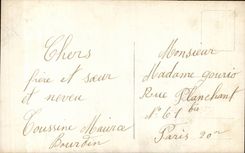 Chers
frère et sœur
et neveu
Toussine Maura
Bourdin
Monsieur
Madame Gourio
Rue Planchant
N° 61 bis
Paris 20e